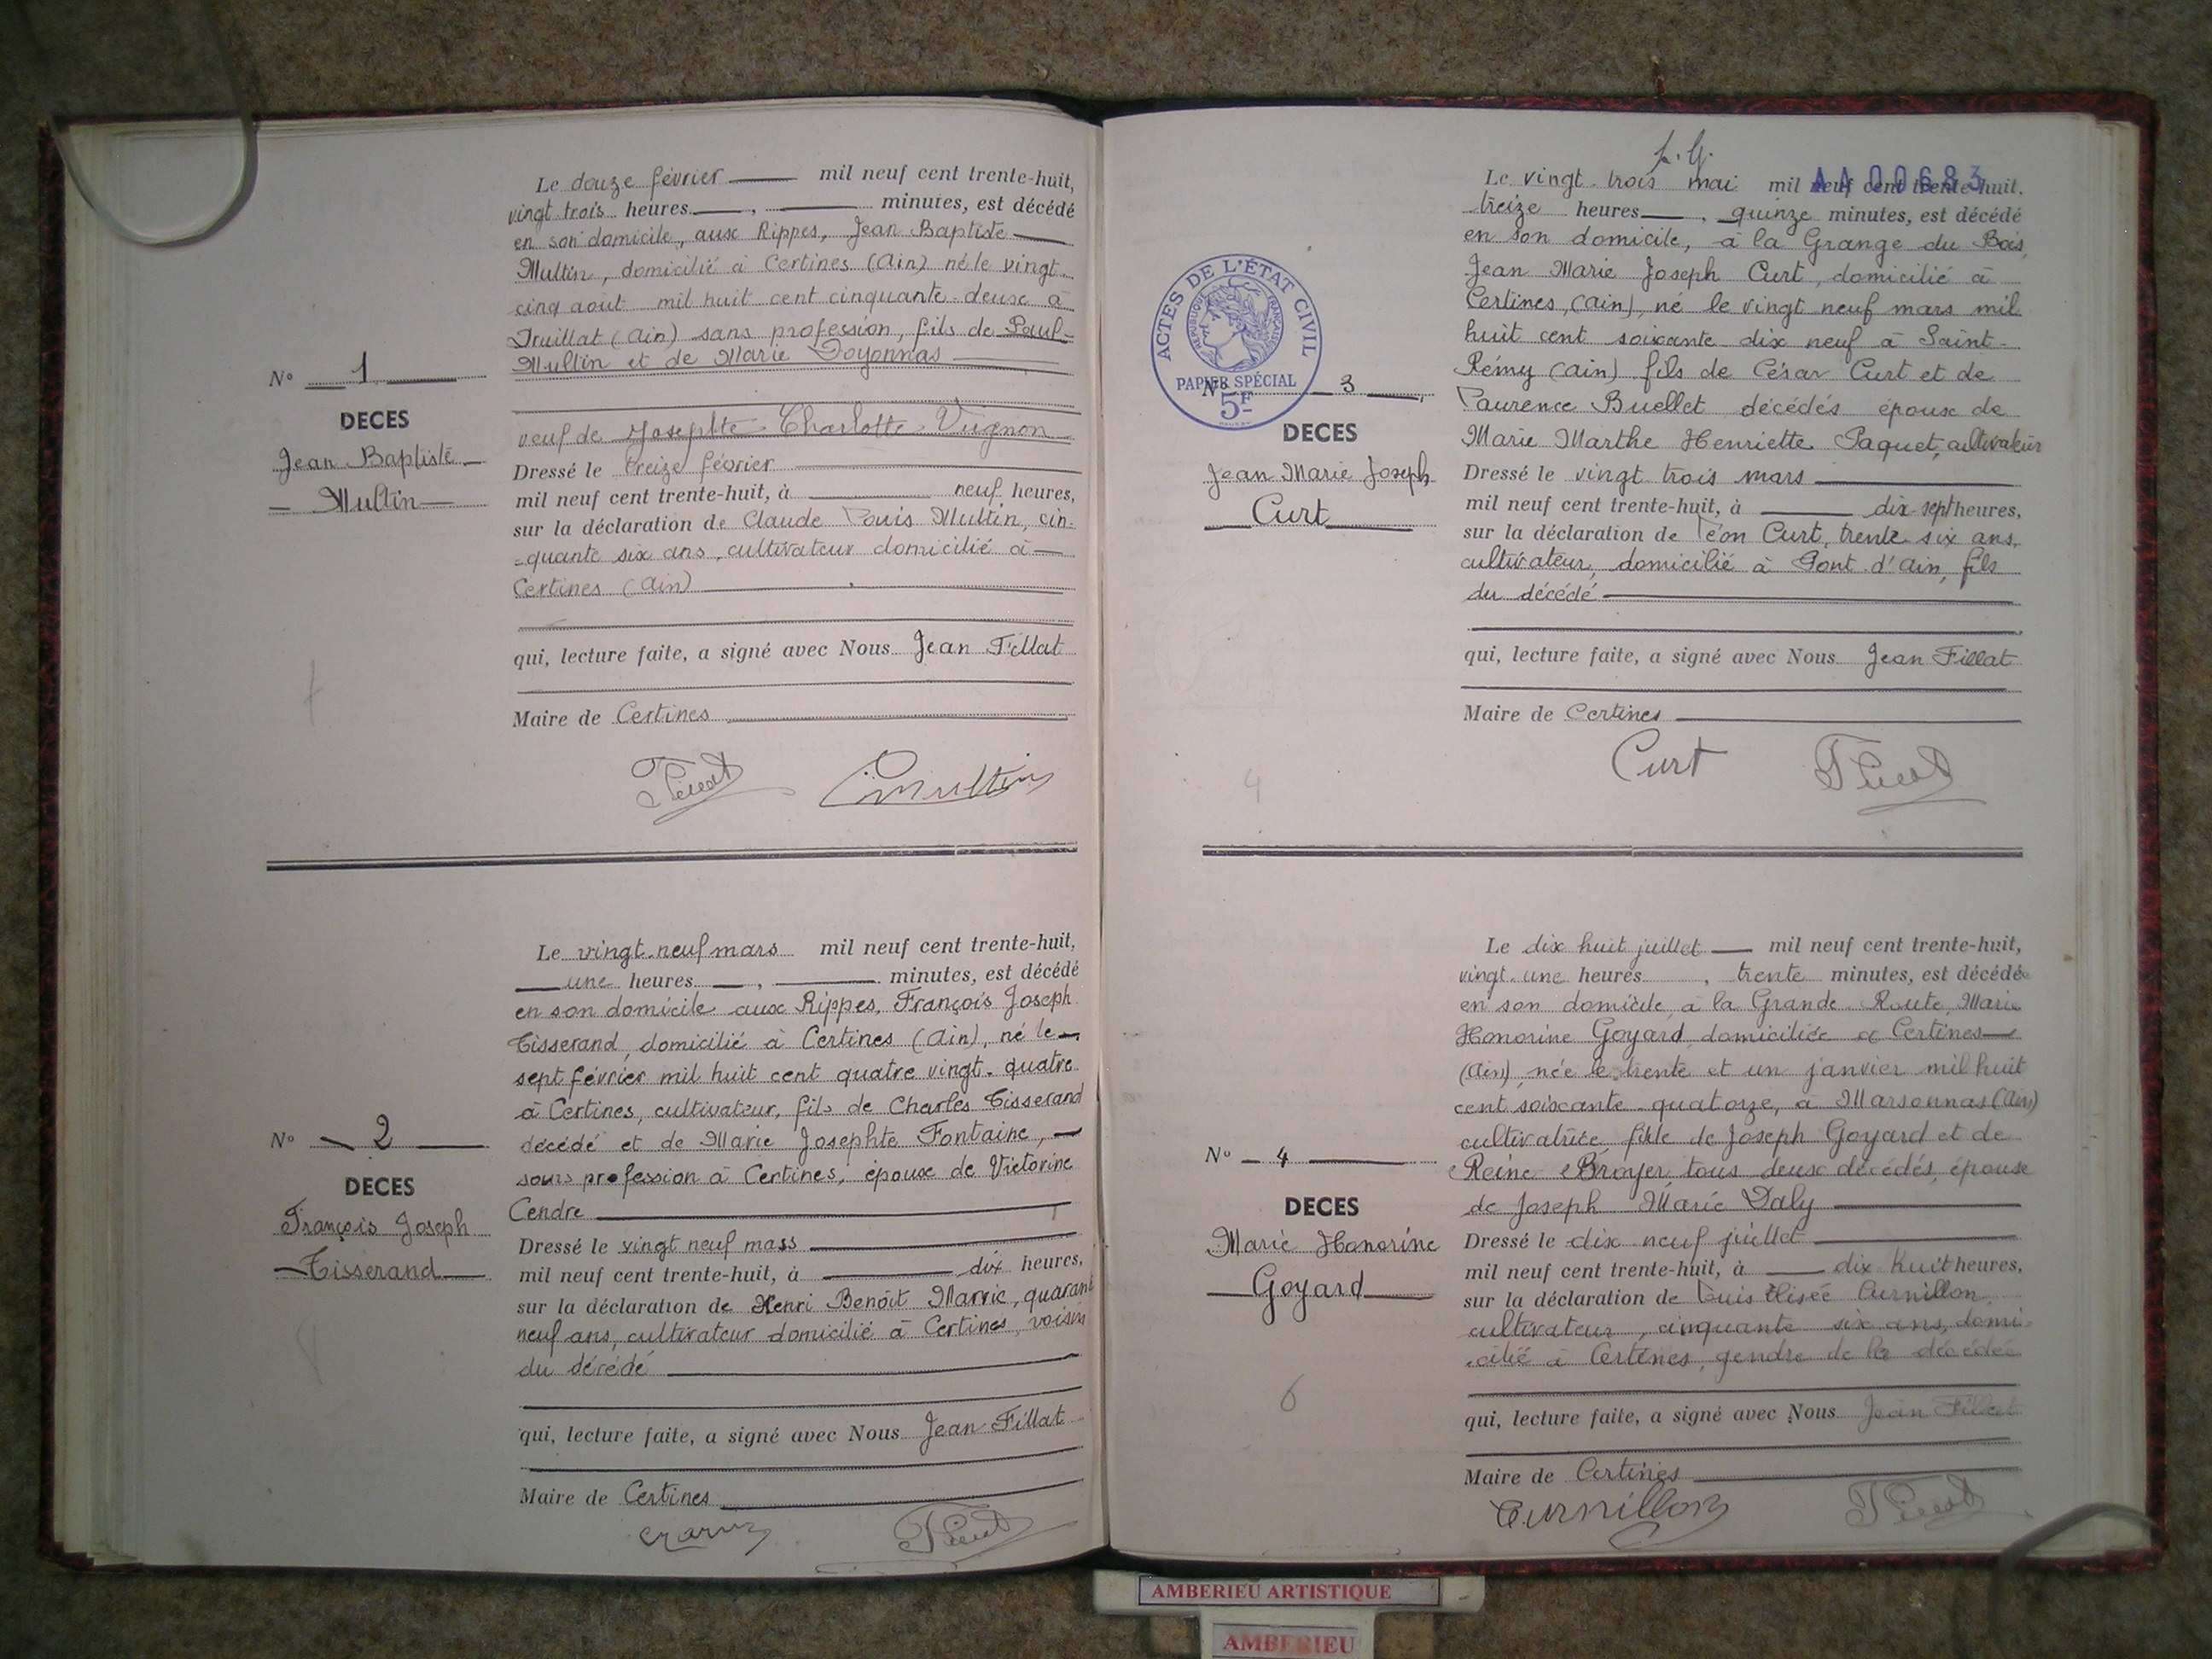 Le douze février mil neuf cent trente-huit,
vingt trois heures, minutes, est décédé
en son domicile, aux Rippes, Jean Baptiste
Multin, domicilié à Certines (Ain) né le vingt
cinq aout mil huit cent cinquante-deux à
Druillat (Ain) sans profession, fils de Paul
Multin et de Marie Doyonnas
veuf de Josephte Charlotte Vugnon
Dressé le treize février
mil neuf cent trente-huit, à neuf heures,
sur la déclaration de Claude Louis Multin, cin-
-quante six ans, cultivateur domicilié à
Certines (Ain)
qui, lecture faite, a signé avec Nous Jean Fillat
Maire de Certines
N° 1
DECES
Jean Baptiste
Multin
Multin
Le vingt-neuf mars mil neuf cent trente-huit,
une heures, minutes, est décédé
en son domicile aux Rippes, François Joseph
Tisserand, domicilié à Certines (Ain), né le
sept février mil huit cent quatre vingt-quatre
à Certines, cultivateur, fils de Charles Tisserand
décédé et de Marie Josephte Fontaine,
sans profession à Certines, époux de Victorine
Cendre
Dressé le vingt neuf mass
mil neuf cent trente-huit, à dix heures,
sur la déclaration de Henri Benoit Marric, quarant
neuf ans, cultivateur domicilié à Certines, voisin
du décédé
qui, lecture faite, a signé avec Nous Jean Fillat
Maire de Certines
N° 2
DECES
François Joseph
Tisserand
AA 00683
Le vingt-trois mai mil neuf cent trente-huit,
treize heures, quinze minutes, est décédé
en son domicile, à la Grange du Bois,
Jean Marie Joseph Curt, domicilié à
Certines, (Ain), né le vingt neuf mars mil
huit cent soixante-dix neuf à Saint-
Rémy (Ain) fils de César Curt et de
Laurence Buellet décédés époux de
Marie Marthe Henriette Paquet, cultivateur
Dressé le vingt trois mars
mil neuf cent trente-huit, à dix-sept heures,
sur la déclaration de Léon Curt, trente-six ans,
cultivateur, domicilié à Pont-d'Ain, fils
du décédé
qui, lecture faite, a signé avec Nous Jean Fillat
Maire de Certines
Curt
ACTES DE L'ÉTAT CIVIL
RÉPUBLIQUE FRANÇAISE
PAPIER SPÉCIAL
5F
N° 3
DECES
Jean Marie Joseph
Curt
4
Le dix huit juillet mil neuf cent trente-huit,
vingt-une heures, trente minutes, est décédé
en son domicile, à la Grande Route, Marie
Honorine Goyard, domiciliée à Certines
(Ain), née le trente et un janvier mil huit
cent soixante-quatorze, à Marsonnas (Ain)
cultivatrice fille de Joseph Goyard et de
Reine Broyer, tous deux décédés, épouse
de Joseph Marie Daly
Dressé le dix neuf juillet
mil neuf cent trente-huit, à dix huit heures,
sur la déclaration de Louis Elisée Curnillon,
cultivateur, cinquante six ans, domi-
cilié à Certines, gendre de la décédée
qui, lecture faite, a signé avec Nous Jean Fillat
Maire de Certines
Curnillon
N° 4
DECES
Marie Honorine
Goyard
6
AMBERIEU ARTISTIQUE
AMBERIEU